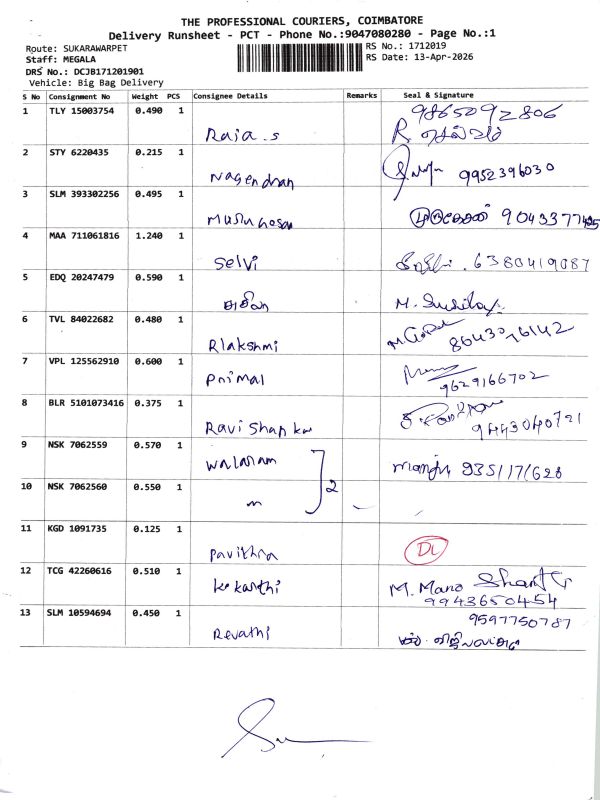 THE PROFESSIONAL COURIERS, COIMBATORE
Delivery Runsheet - PCT - Phone No.:9047080280 - Page No.:1
Route: SUKARAWARPET
RS No.: 1712019
Staff: MEGALA
RS Date: 13-Apr-2026
DRS No.: DCJB171201901
Vehicle: Big Bag Delivery
S No Consignment No Weight PCS Consignee Details Remarks Seal & Signature
1 TLY 15003754 0.490 1
9865092806
Raja.s R.
2 STY 6220435 0.215 1
Nagendran 9952396030
3 SLM 393302256 0.495 1
Murugesan முருகேசன்
4 MAA 711061816 1.240 1
Selvi 6380419087
5 EDQ 20247479 0.590 1
M.
6 TVL 84022682 0.480 1
Rlakshmi
7 VPL 125562910 0.600 1
9629166702
8 BLR 5101073416 0.375 1
Ravi Shankar
9 NSK 7062559 0.570 1
walaram 2 Manju
10 NSK 7062560 0.550 1
11 KGD 1091735 0.125 1
Pavithra DL
12 TCG 42260616 0.510 1
M. Mano
9943650454
13 SLM 10594694 0.450 1
9597750787
Revathi